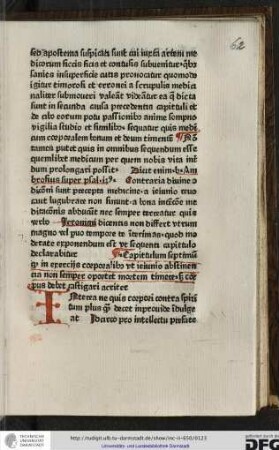 62
sed apostema suspicãs sunt cui iuxta artem me
dicorum siccis sicis et contusis subuenitur qbus
sanies in superficie cutis prouocatur quomodo
igitur timorosi et erronei a scrupulis medica
naliter submoueri valeãt videãtur ea q̃ dicta
sunt in secunda causa precedentis capituli et
de cibo eorum potu passionibus anime sompno
vigilia studio et similibus sequatur quis medi
cum corporalem totum et deum timentem
tanta putet quis in omnibus sequendum esse
quemlibet medicum per quem nobis vita in
dum prolongari possit Dicit enim b. Am
brosius super psal. Contraria diuine
dicõni sunt precepta medicine a ieiunio reuo
cant lugubrare non sinunt a bona intẽcõne me
ditacõnis abducunt nec semper terreatur quis
verbo Jeronimi dicentis non differt vtrum
magno vel paruo tempore te interimas quod mo
derate exponendum est vt sequenti capitulo
declarabitur Capitulum septimũ
q in exercicijs corporalibus vt ieiunio abstinen
cia non semper oportet mortem timere sed cor
pus debet castigari acriter
INterea ne quis corpori contra spiri
tum plus q̃ decet inprouide indulge
at Idcirco pro intellectu prefate
http://tudigit.ulb.tu-darmstadt.de/show/inc-ii-650/0123
Universitäts- und Landesbibliothek Darmstadt
TECHNISCHE
UNIVERSITÄT
DARMSTADT
DFG